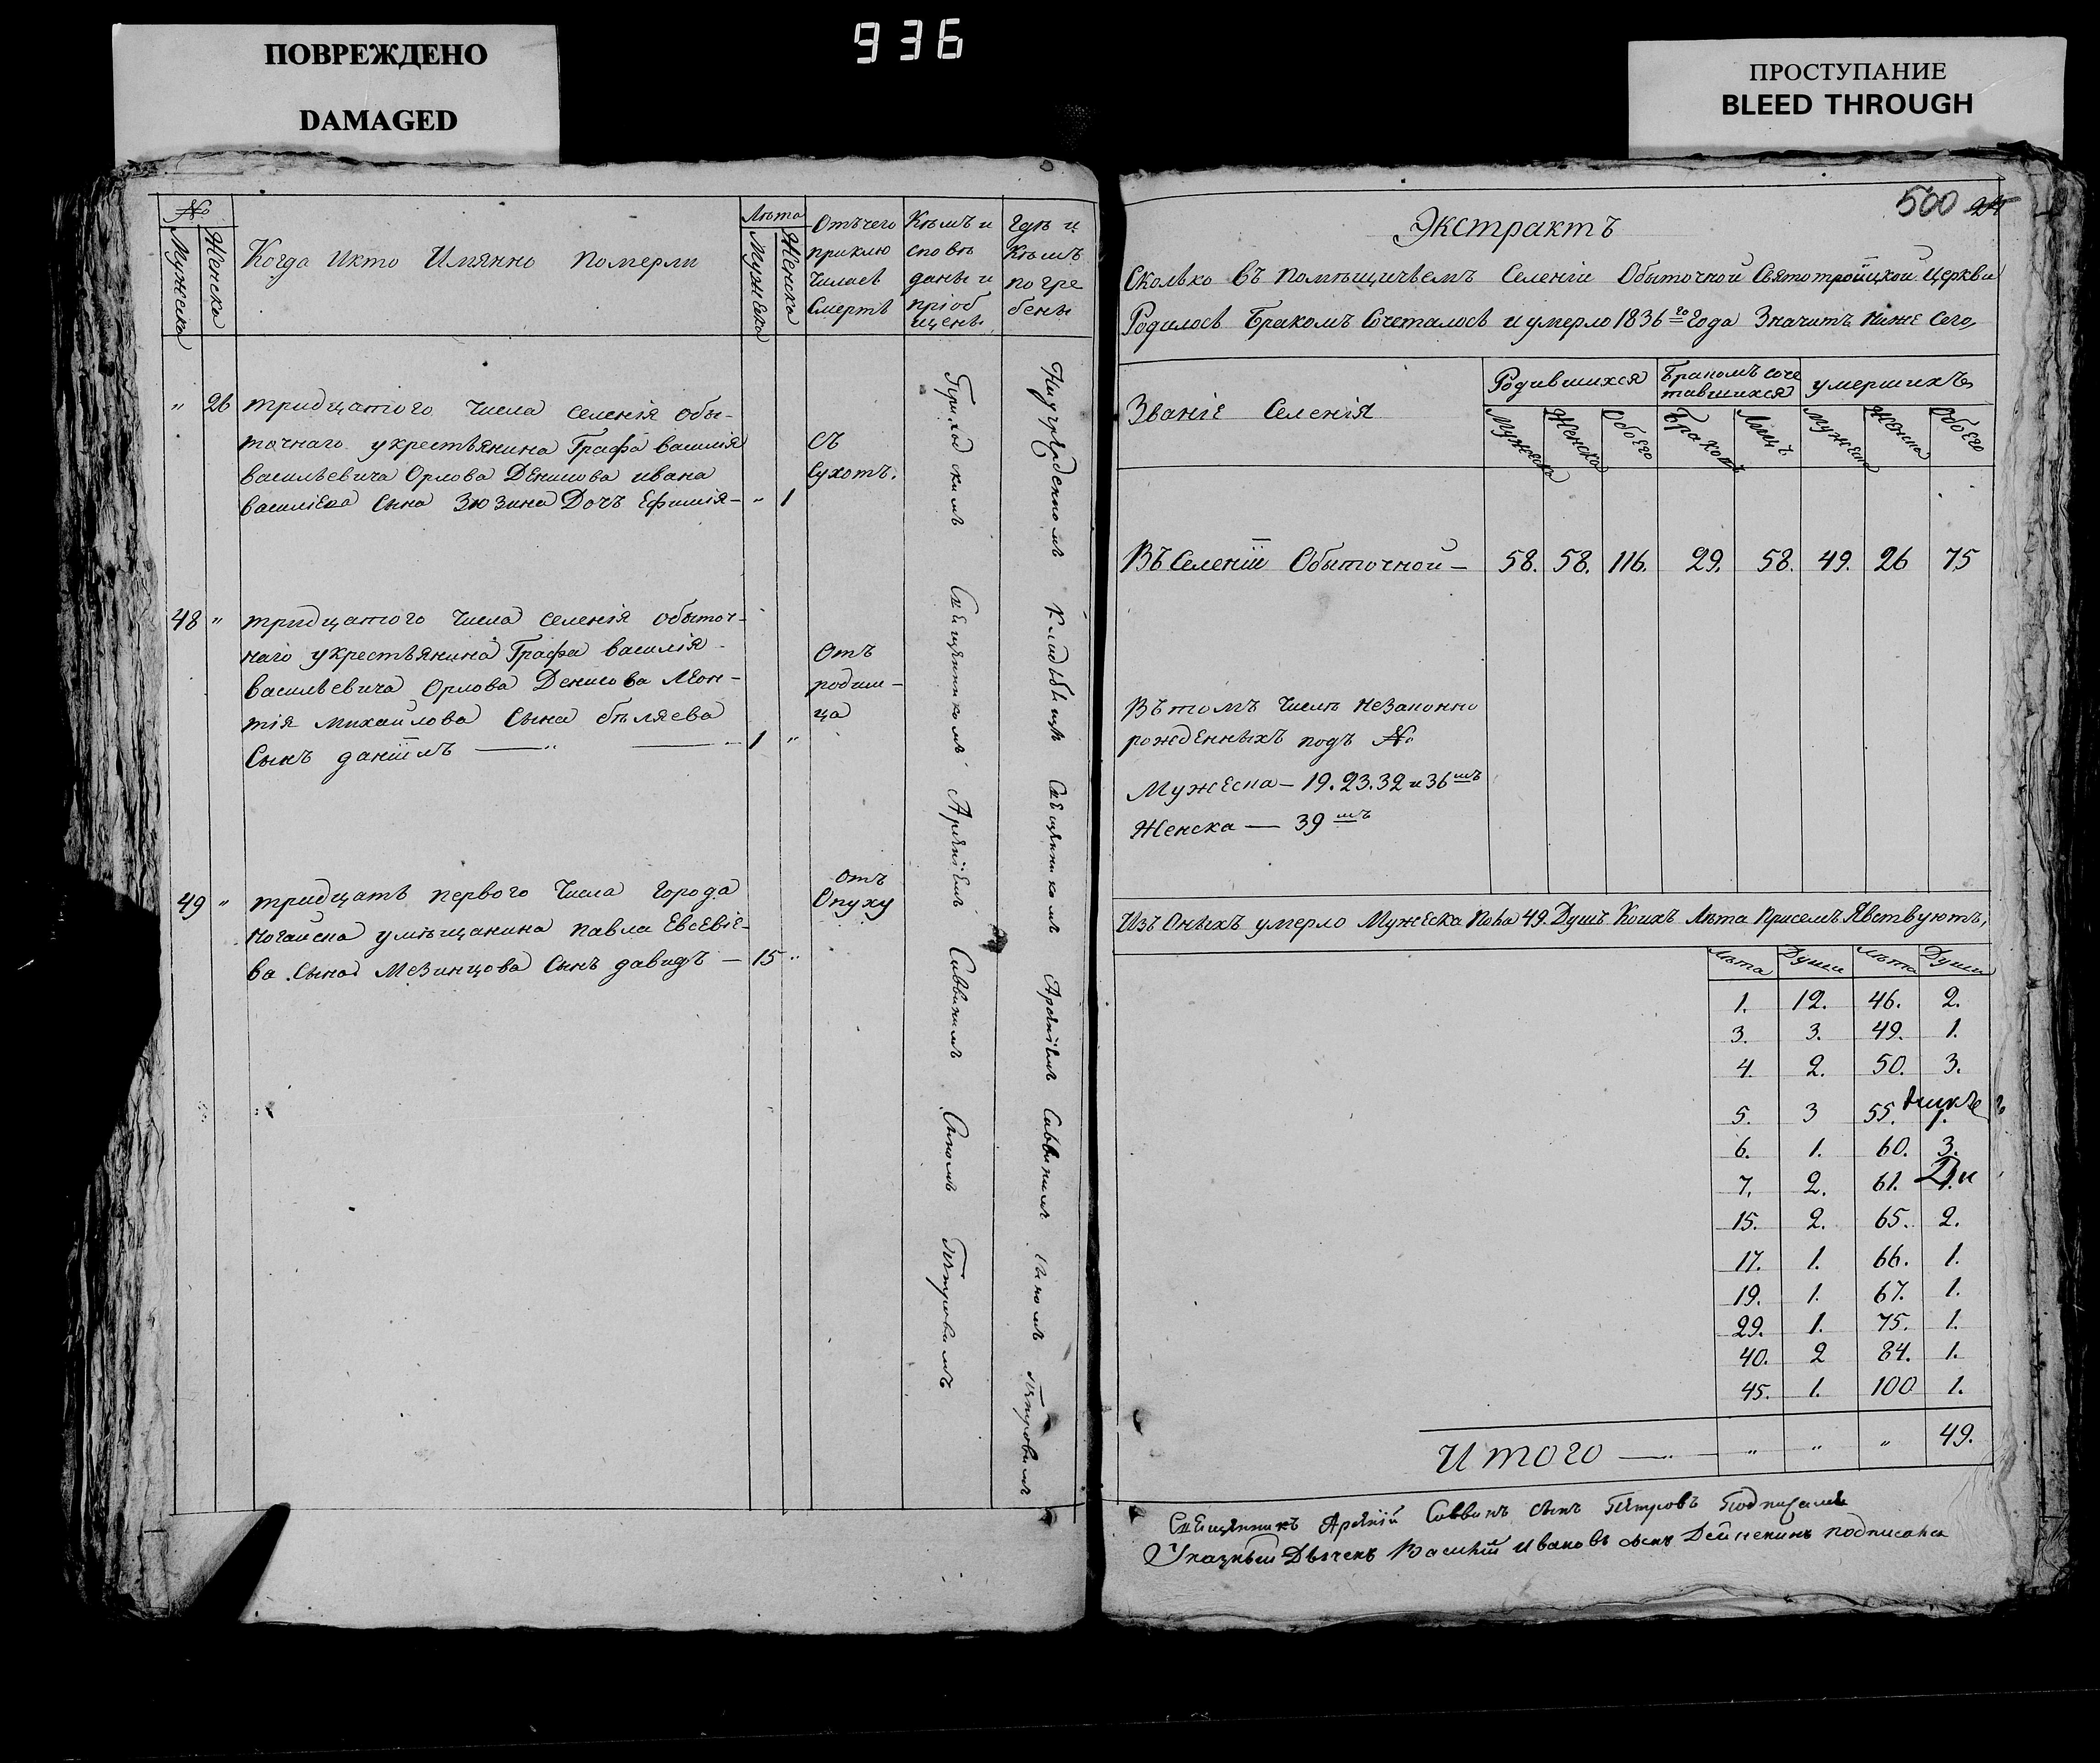 ПОВРЕЖДЕНО
DAMAGED
936
ПРОСТУПАНИЕ
BLEED THROUGH
№
Мужеска
Женска
Когда Икто Имянно Померли
Лѣта
Мужеска
Женска
Отъчего
приклю
чилась
Смерть
Кѣмъ и
споввѣ
даны и
пріоб
щены
Гдѣ и
Кѣмъ
погре
бены
" 26 тридцатого Числа селенія обы-
точнаго укрестьянина Графа василія
васильевича Орлова Денисова ивана
василіева Сына Зюзина Дочь Ефимія - " 1
съ
Сухотъ.
48 " тридцатого Числа селенія обыточ-
наго укрестьянина Графа василія
васильевича Орлова Денисова Леон-
тія михайлова Сына бѣляева
Сынъ даніилъ — " — 1 "
Отъ
родим-
ца
49 " тридцать первого Числа Города
Ногайска умѣщанина павла Евсевіе-
ва Сына Мезинцова Сынъ давидъ — 15 "
Отъ
Опуху
Приходскимъ Священникомъ Арсеніемъ Саввинымъ Сыномъ Петровымъ
Священникомъ Арсеніемъ Саввинымъ Сыномъ Петровымъ
500 24
Экстрактъ
Сколько въ помѣщичьемъ Селеніи Обыточной Святотройцкой Церкви
Родилось Бракомъ Сочеталось и умерло 1836го Года Значитъ ниже сего,
Званіе Селенія
Родившихся
Бракомъ соче
тавшихся
умершихъ
Мужеска
Женска
Обоего
Браковъ
Лицъ
Мужеска
Женска
Обоего
Въ Селеніи Обыточной — 58. 58. 116. 29. 58. 49. 26 75
Вътомъ Числѣ незаконно
рожденныхъ подъ №
Мужеска — 19. 23. 32 и 36мъ
Женска — 39мъ
Изъ Оныхъ умерло Мужеска пола 49. Душъ Коихъ Лѣта присемъ Явствуютъ,
Лѣта Души Лѣта Души
1. 12. 46. 2.
3. 3. 49. 1.
4. 2. 50. 3.
5. 3 55. 1.
6. 1. 60. 3.
7. 2. 61. 1.
15. 2. 65. 2.
17. 1. 66. 1.
19. 1. 67. 1.
29. 1. 75. 1.
40. 2 84. 1.
45. 1. 100 1.
Итого — " " " 49.
Священникъ Арсеній Саввинъ сынъ Петровъ Подписалъ
Указный Дьячекъ Василій Ивановъ сынъ Дейнекинъ подписался